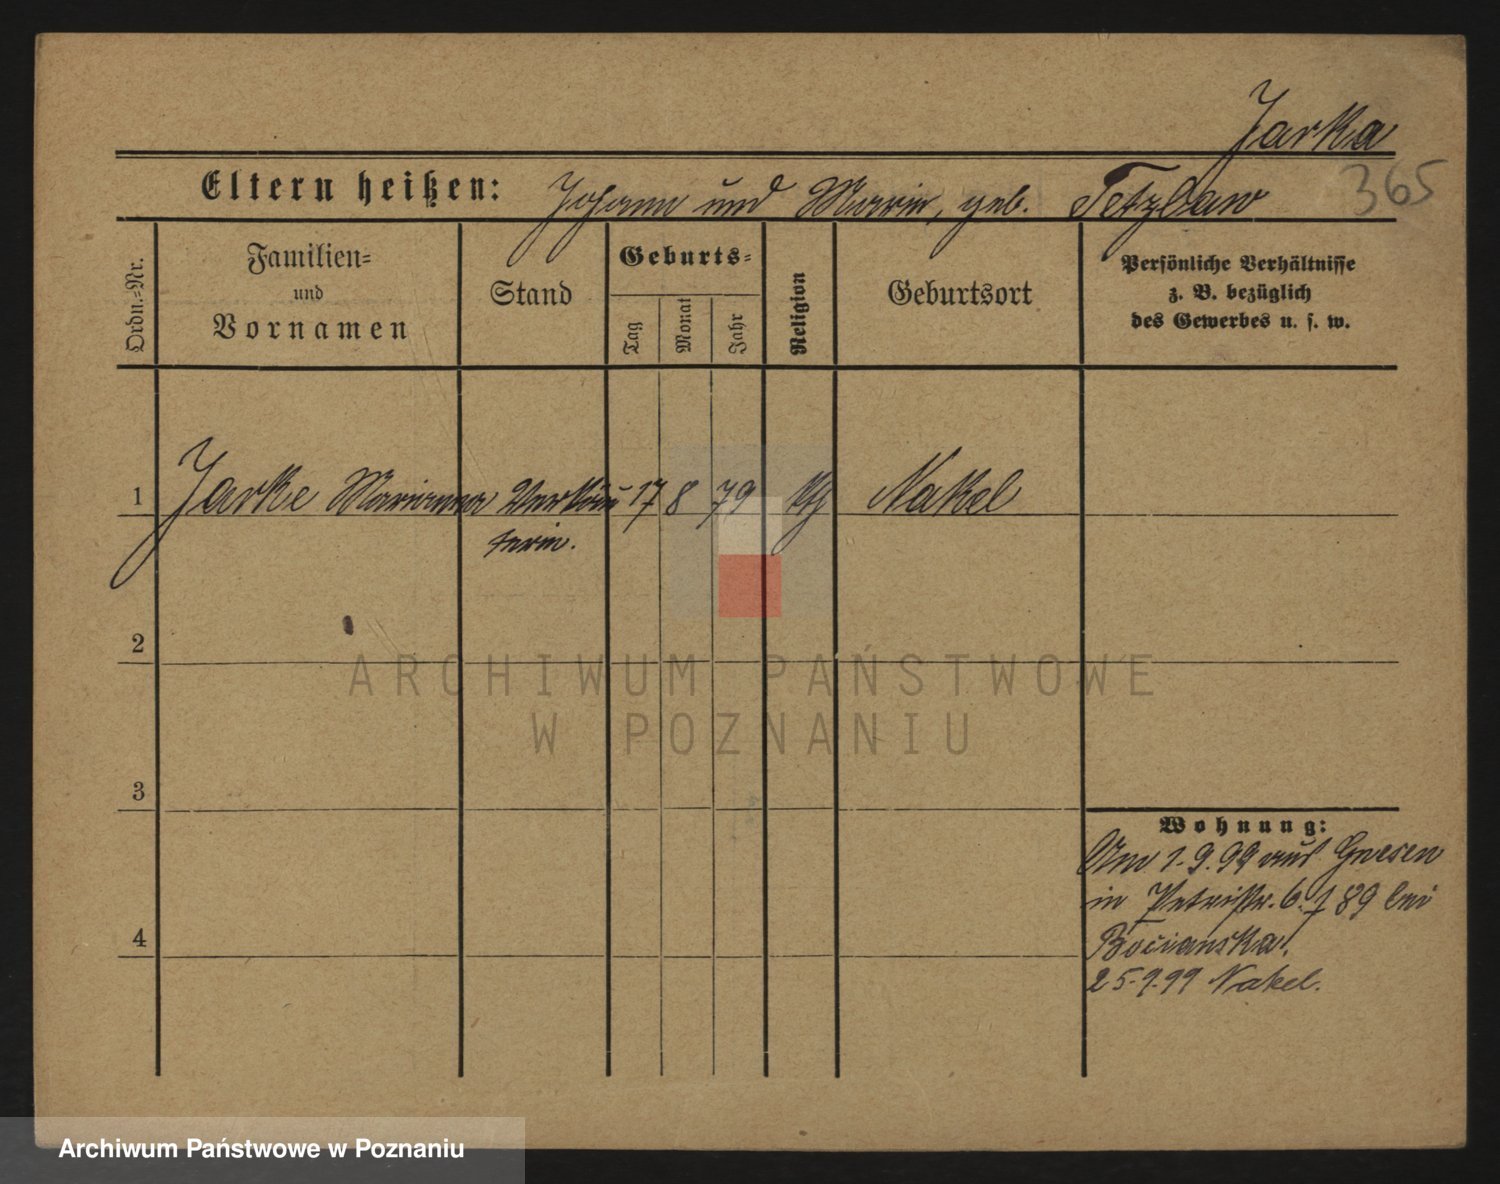 Jarka
365
Eltern heißen: Johann und Marie, geb. Tetzlaw
Ordn.-Nr.
Familien-
und
Vornamen
Stand
Geburts-
Tag
Monat
Jahr
Religion
Geburtsort
Persönliche Verhältnisse
z. B. bezüglich
des Gewerbes u. s. w.
1 Jarke Marianna Verkäu 17 8 79 Nakel
ferin.
2
ARCHIWUM PAŃSTWOWE
W POZNANIU
3
Wohnung:
Am 1.9.99 aus Gnesen
in Petristr. 6. 189 bei
4
Bocianska.
25.9.99 Nakel.
Archiwum Państwowe w Poznaniu